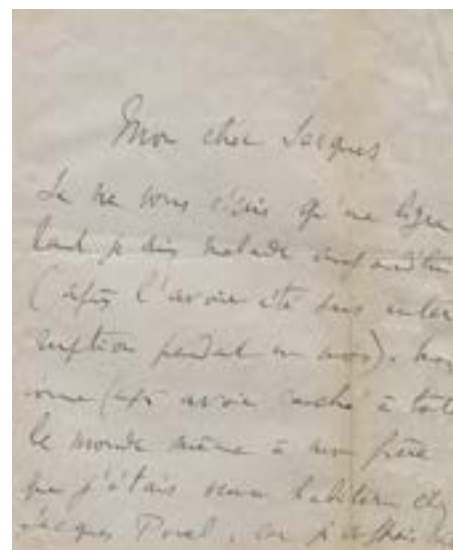 Mon cher Jacques
Je ne vous écris qu'une ligne
tant je suis malade
(après l'avoir été sans inter
ruption pendant un mois).
(après avoir caché à tout
le monde même à mon frère
que j'étais venu habiter chez
Jacques Porel, car je